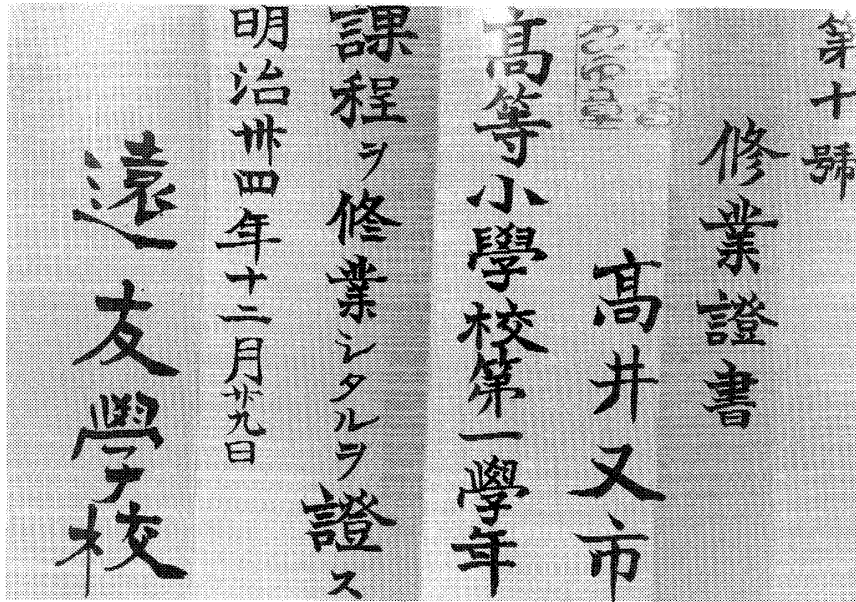 第十號
修業證書
髙井又市
髙等小學校第一學年
課程ヲ修業シタルヲ證ス
明治卅四年十二月廿九日
遠友學校